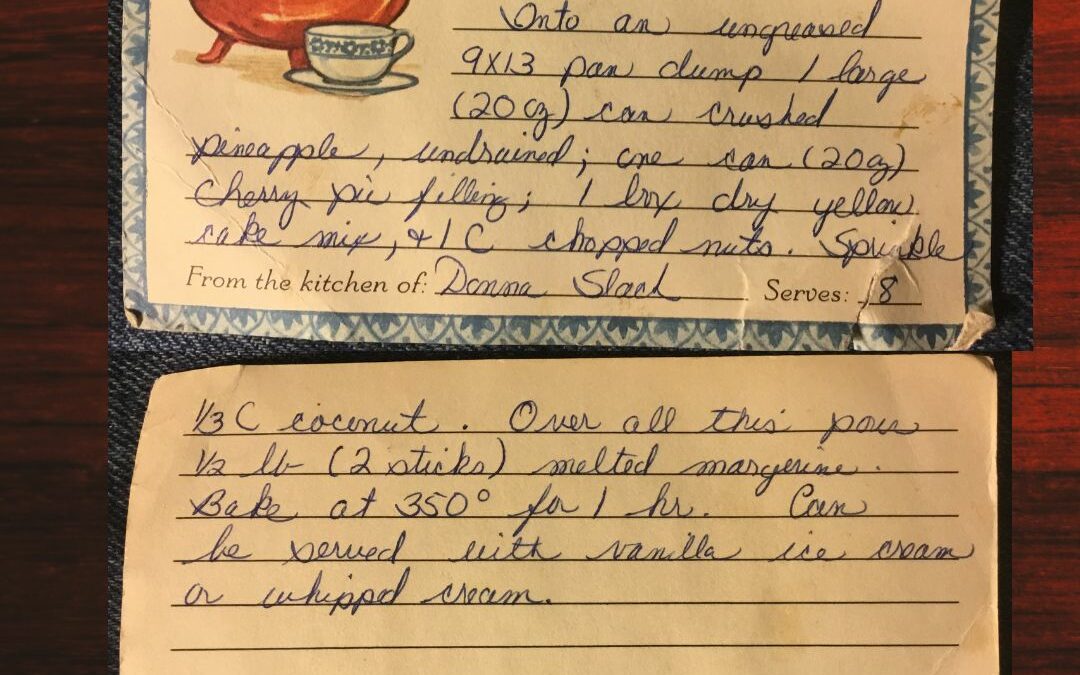 Onto an ungreased
9X13 pan dump 1 large
(20 oz) can crushed
pineapple, undrained; one can (20 oz)
cherry pie filling; 1 box dry yellow
cake mix, & 1 C chopped nuts. Sprinkle
From the kitchen of: Donna Slach Serves: 18
1/3 C coconut. Over all this pour
1/2 lb (2 sticks) melted margerine.
Bake at 350° for 1 hr. Can
be served with vanilla ice cream
or whipped cream.